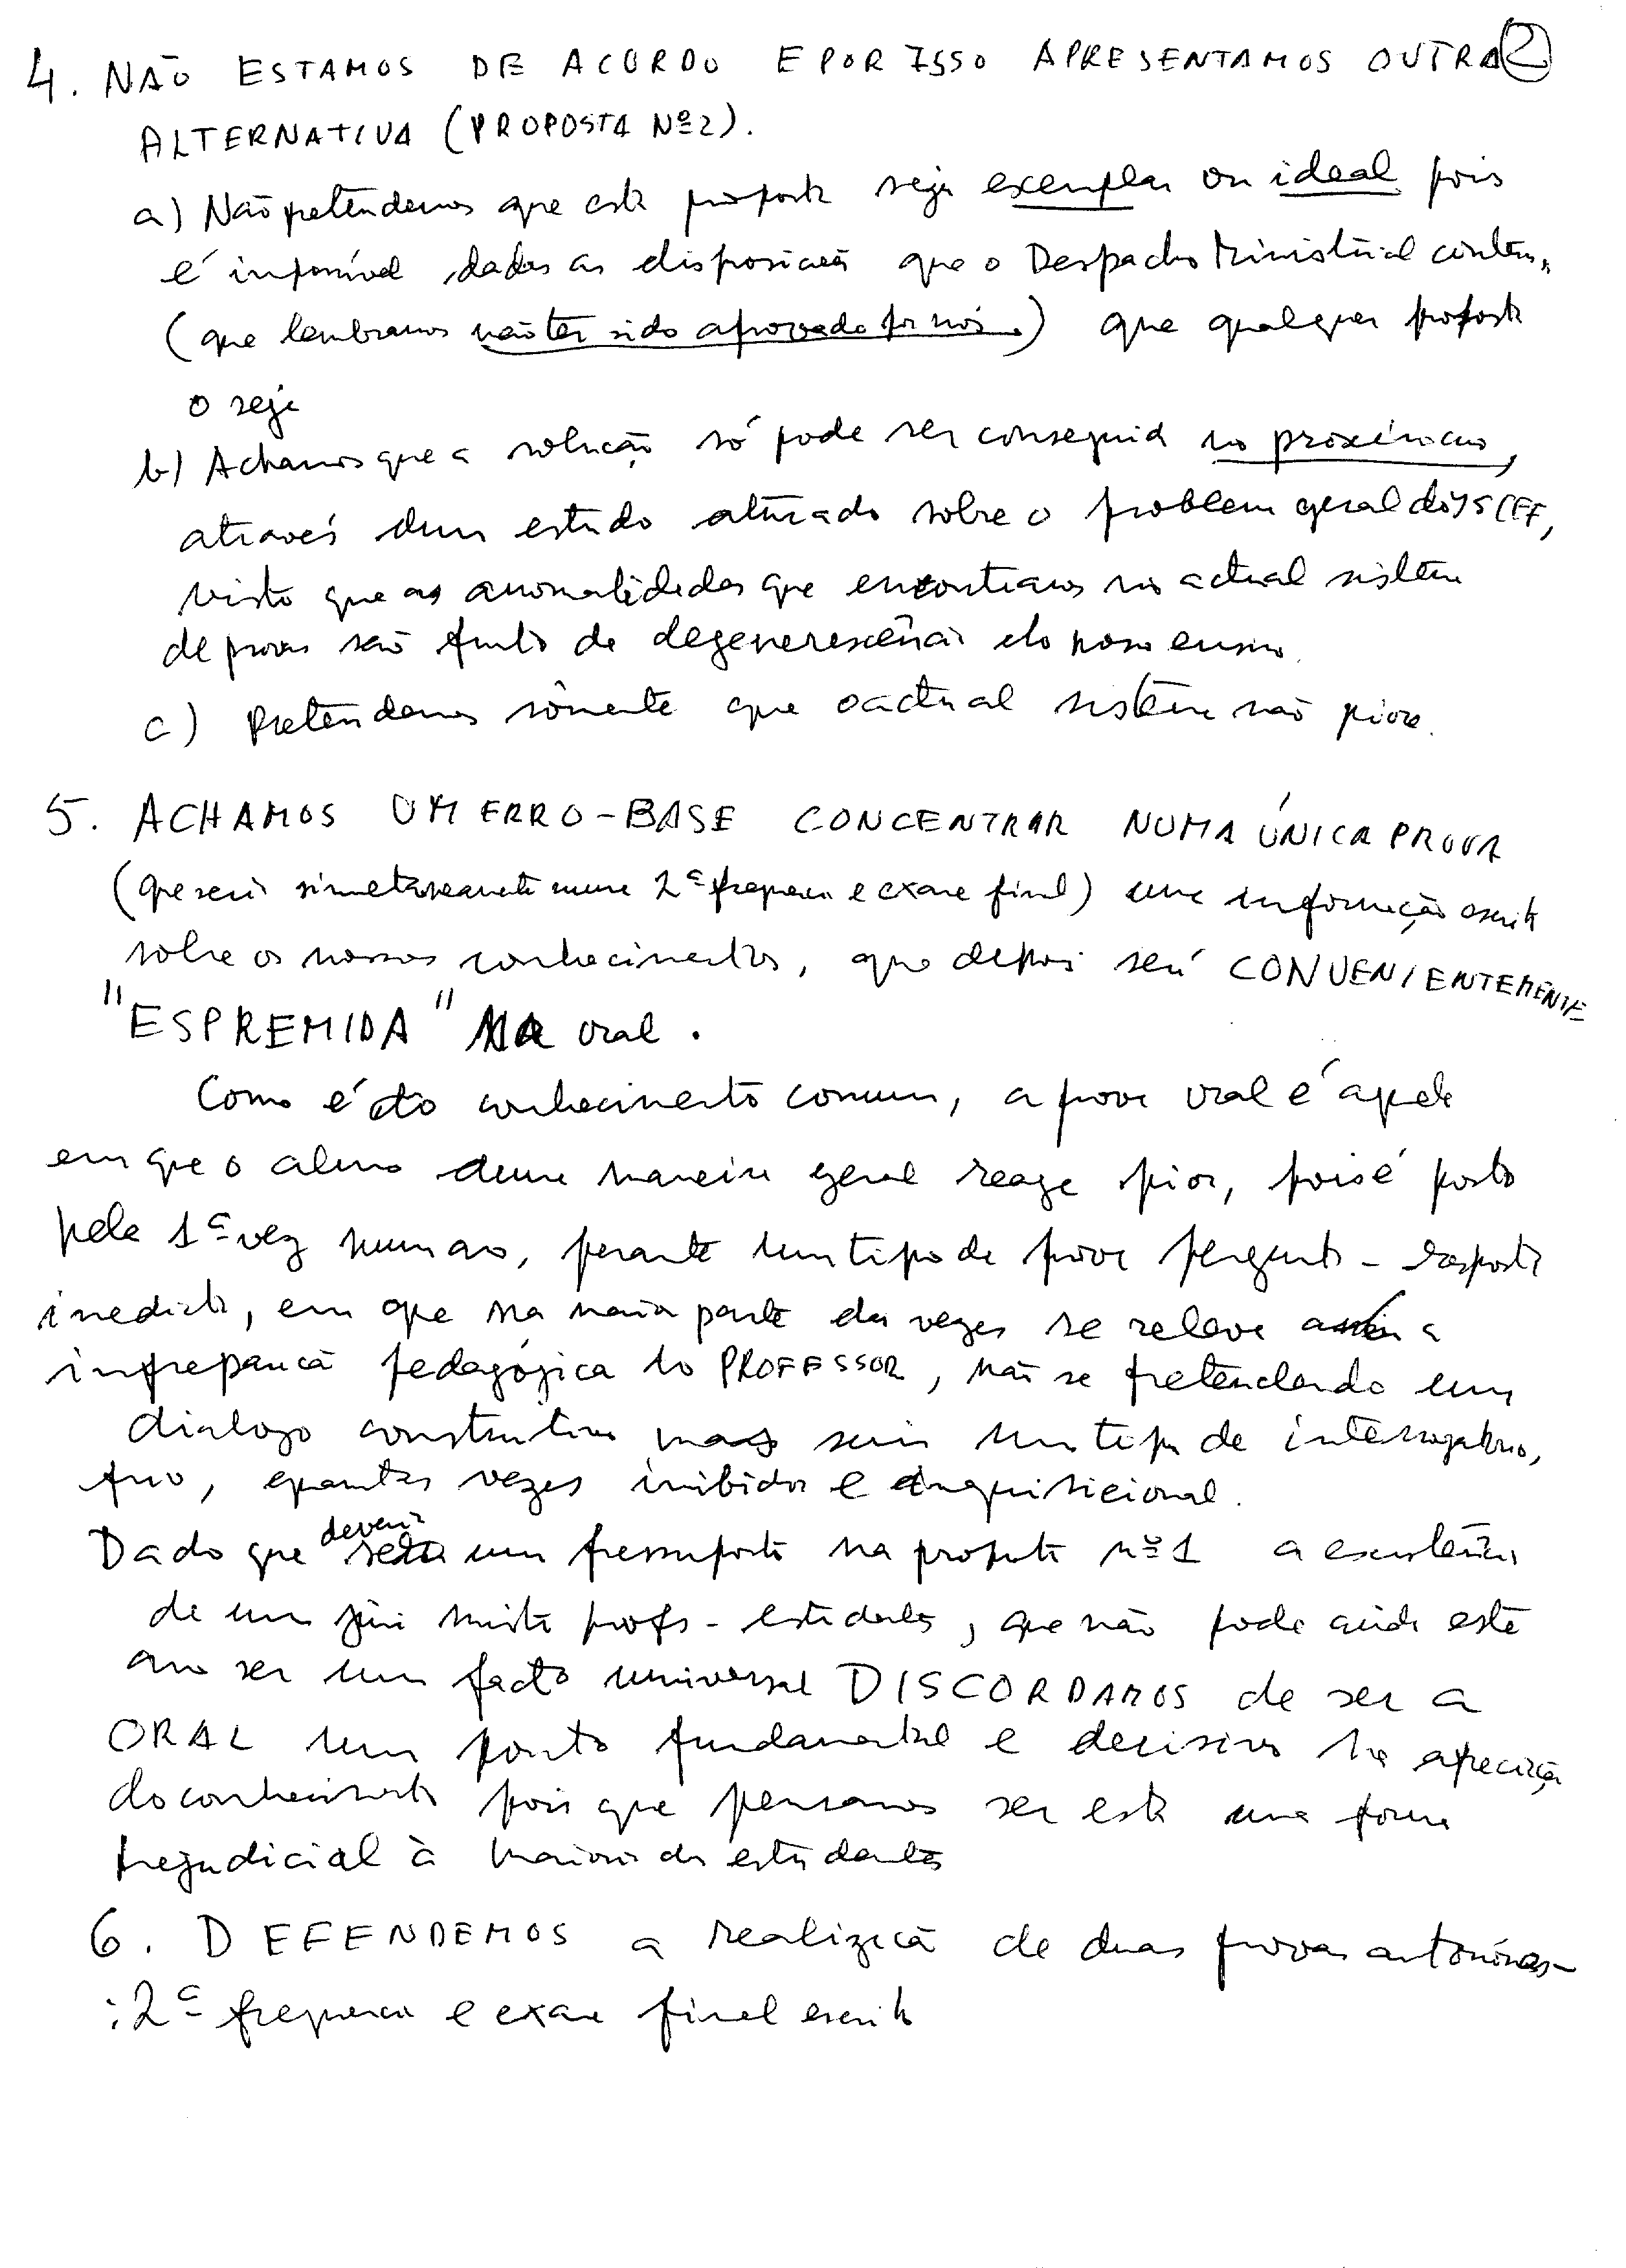 4. NÃO ESTAMOS DE ACORDO E POR ISSO APRESENTAMOS OUTRA (2)
ALTERNATIVA (PROPOSTA Nº 2).
a) Não pretendemos que esta proposta seja exemplar ou ideal pois
é impossível dadas as disposições que o Despacho Ministerial contém,
(que lembramos não ter sido aprovado por nós.) que qualquer proposta
o seja
b) Achamos que a solução só pode ser conseguida no próximo ano,
através dum estudo aturado sobre o problema geral do ISCEF,
visto que as anomalidades que encontramos no actual sistema
de provas são fruto de degenerescência do nosso ensino.
c) Pretendemos sòmente que o actual sistema não piore.
5. ACHAMOS UM ERRO-BASE CONCENTRAR NUMA ÚNICA PROVA
(que será simultaneamente uma 2ª frequência e exame final) uma informação escrita
sobre os nossos conhecimentos, que depois será CONVENIENTEMENTE
"ESPREMIDA" NA oral.
Como é do conhecimento comum, a prova oral é aquela
em que o aluno duma maneira geral reage pior, pois é posto
pela 1ª vez num ano, perante um tipo de prova pergunta - resposta
imediata, em que na maior parte das vezes se releva a
impreparação pedagógica do PROFESSOR, não se pretendendo um
dialogo construtivo mas sim um tipo de interrogatório,
frio, quantas vezes inibidor e inquisicional.
Dado que deveria ser um pressuposto na proposta nº 1 a existência
de um júri misto profs - estudantes, que não pode ainda este
ano ser um facto universal DISCORDAMOS de ser a
ORAL um ponto fundamental e decisivo na apreciação
do conhecimento pois que pensamos ser esta uma forma
prejudicial à maioria dos estudantes
6. DEFENDEMOS a realização de duas provas autónomas -
: 2ª frequência e exame final escrito